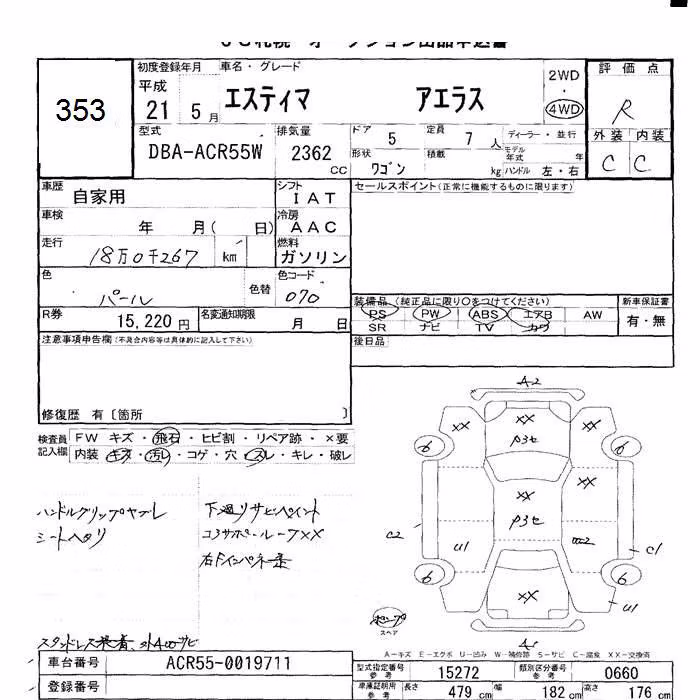 353
初度登録年月 車名・グレード
平成 21 5 月 エスティマ アエラス
2WD
4WD
評価点
R
外装 内装
C C
型式 排気量 ドア 5 定員 7 人 ディーラー・並行
DBA-ACR55W 2362 CC
形状 ワゴン 積載 kg
モデル年式 年
ハンドル 左・右
車歴 自家用 シフト IAT
セールスポイント(正常に機能するものに限ります)
車検 年 月( 日) 冷房 AAC
走行 18万0千267 km 燃料 ガソリン
色 パール 色替 色コード 070
装備品 (純正品に限り○をつけてください) 新車保証書
PS PW ABS エアB AW 有・無
SR ナビ TV カワ
R券 15,220 円 名変通知期限 月 日
後日品
注意事項申告欄(不具合内容等は具体的に記入して下さい)
修復歴 有〔箇所 〕
検査員記入欄
FW キズ・飛石・ヒビ割・リペア跡・×要
内装 キズ・汚レ・コゲ・穴・スレ・キレ・破レ
ハンドルグリップヤブレ
シートヘタリ
下廻リサビペイント
コアサポールーフXX
A2
XX XX XX
P3セ
6 6
XX XX
P3セ
C2 U1 C1
6 6
XX U1
スペア
A-キズ E-エクボ U-凹み W-補修跡 S-サビ C-腐食 XX-交換済
車台番号 ACR55-0019711
登録番号
型式指定番号 参考 15272 類別区分番号 参考 0660
車庫証明用 参考 長さ 479 cm 幅 182 cm 高さ 176 cm